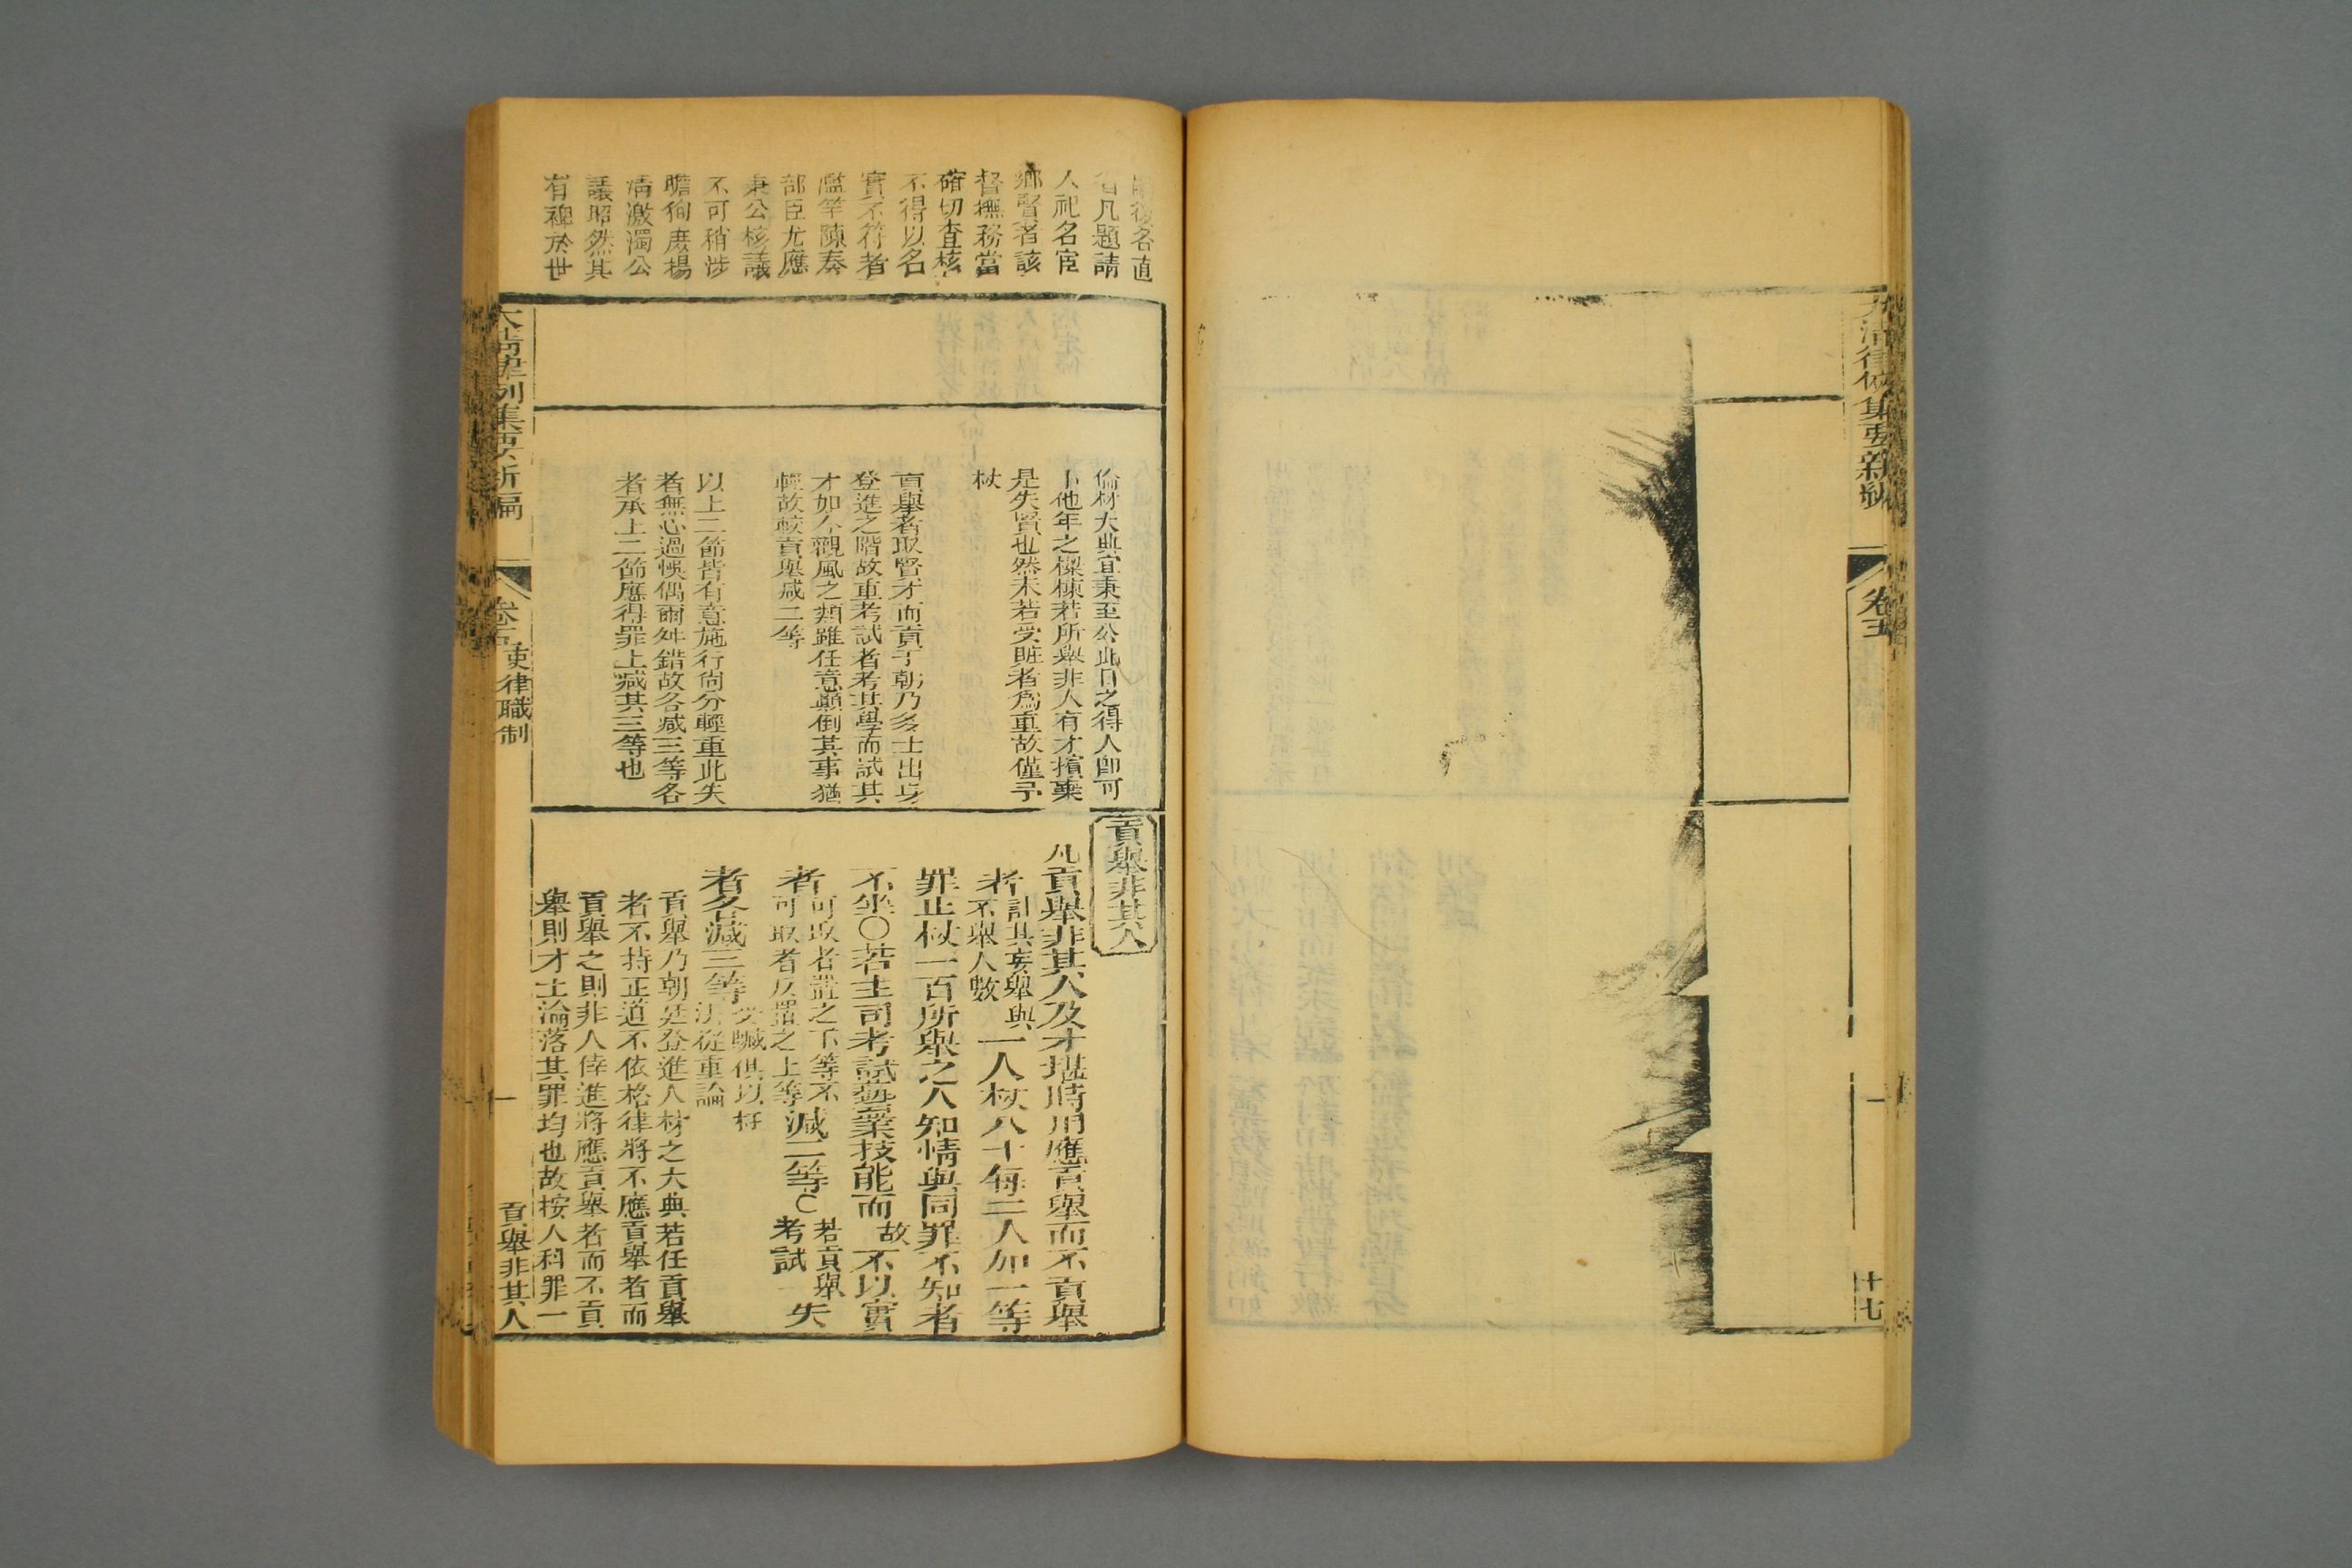 大清律例集要新編
卷五
十七
嗣後各直
省凡題請
人祀名宦
鄉賢者該
督撫務當
確切查核
不得以名
實不符者
濫竽陳奏
部臣尤應
秉公核議
不可稍涉
瞻徇庶揚
清激濁公
議昭然其
有裨於世
倫材大典宜秉至公此日之得人卽可
卜他年之樑棟若所舉非人有才擯棄
是失賢也然未若受賍者爲重故僅予
杖
貢舉者取賢才而貢于朝乃多士出身
登進之階故重考試者考其學而試其
才如今觀風之類雖任意顚倒其事猶
輕故較貢舉減二等
以上二節皆有意施行尙分輕重此失
者無心過悞偶爾舛錯故各減三等各
者承上二節應得罪上減其三等也
貢舉非其人
凡貢舉非其人及才堪時用應貢舉而不貢舉
者計其妄舉與不舉人數一人杖八十每二人加一等
罪止杖一百所舉之人知情與同罪不知者
不坐○若主司考試藝業技能而故不以實
者可取者置之下等不可取者反置之上等減二等○若貢舉考試失
者各減三等受贓俱以枉法從重論
貢舉乃朝廷登進人材之大典若任貢舉
者不持正道不依格律將不應貢舉者而
貢舉之則非人倖進將應貢舉者而不貢
舉則才士淪落其罪均也故按人科罪一
大清律例集要新編
卷五
吏律職制
一
貢舉非其人